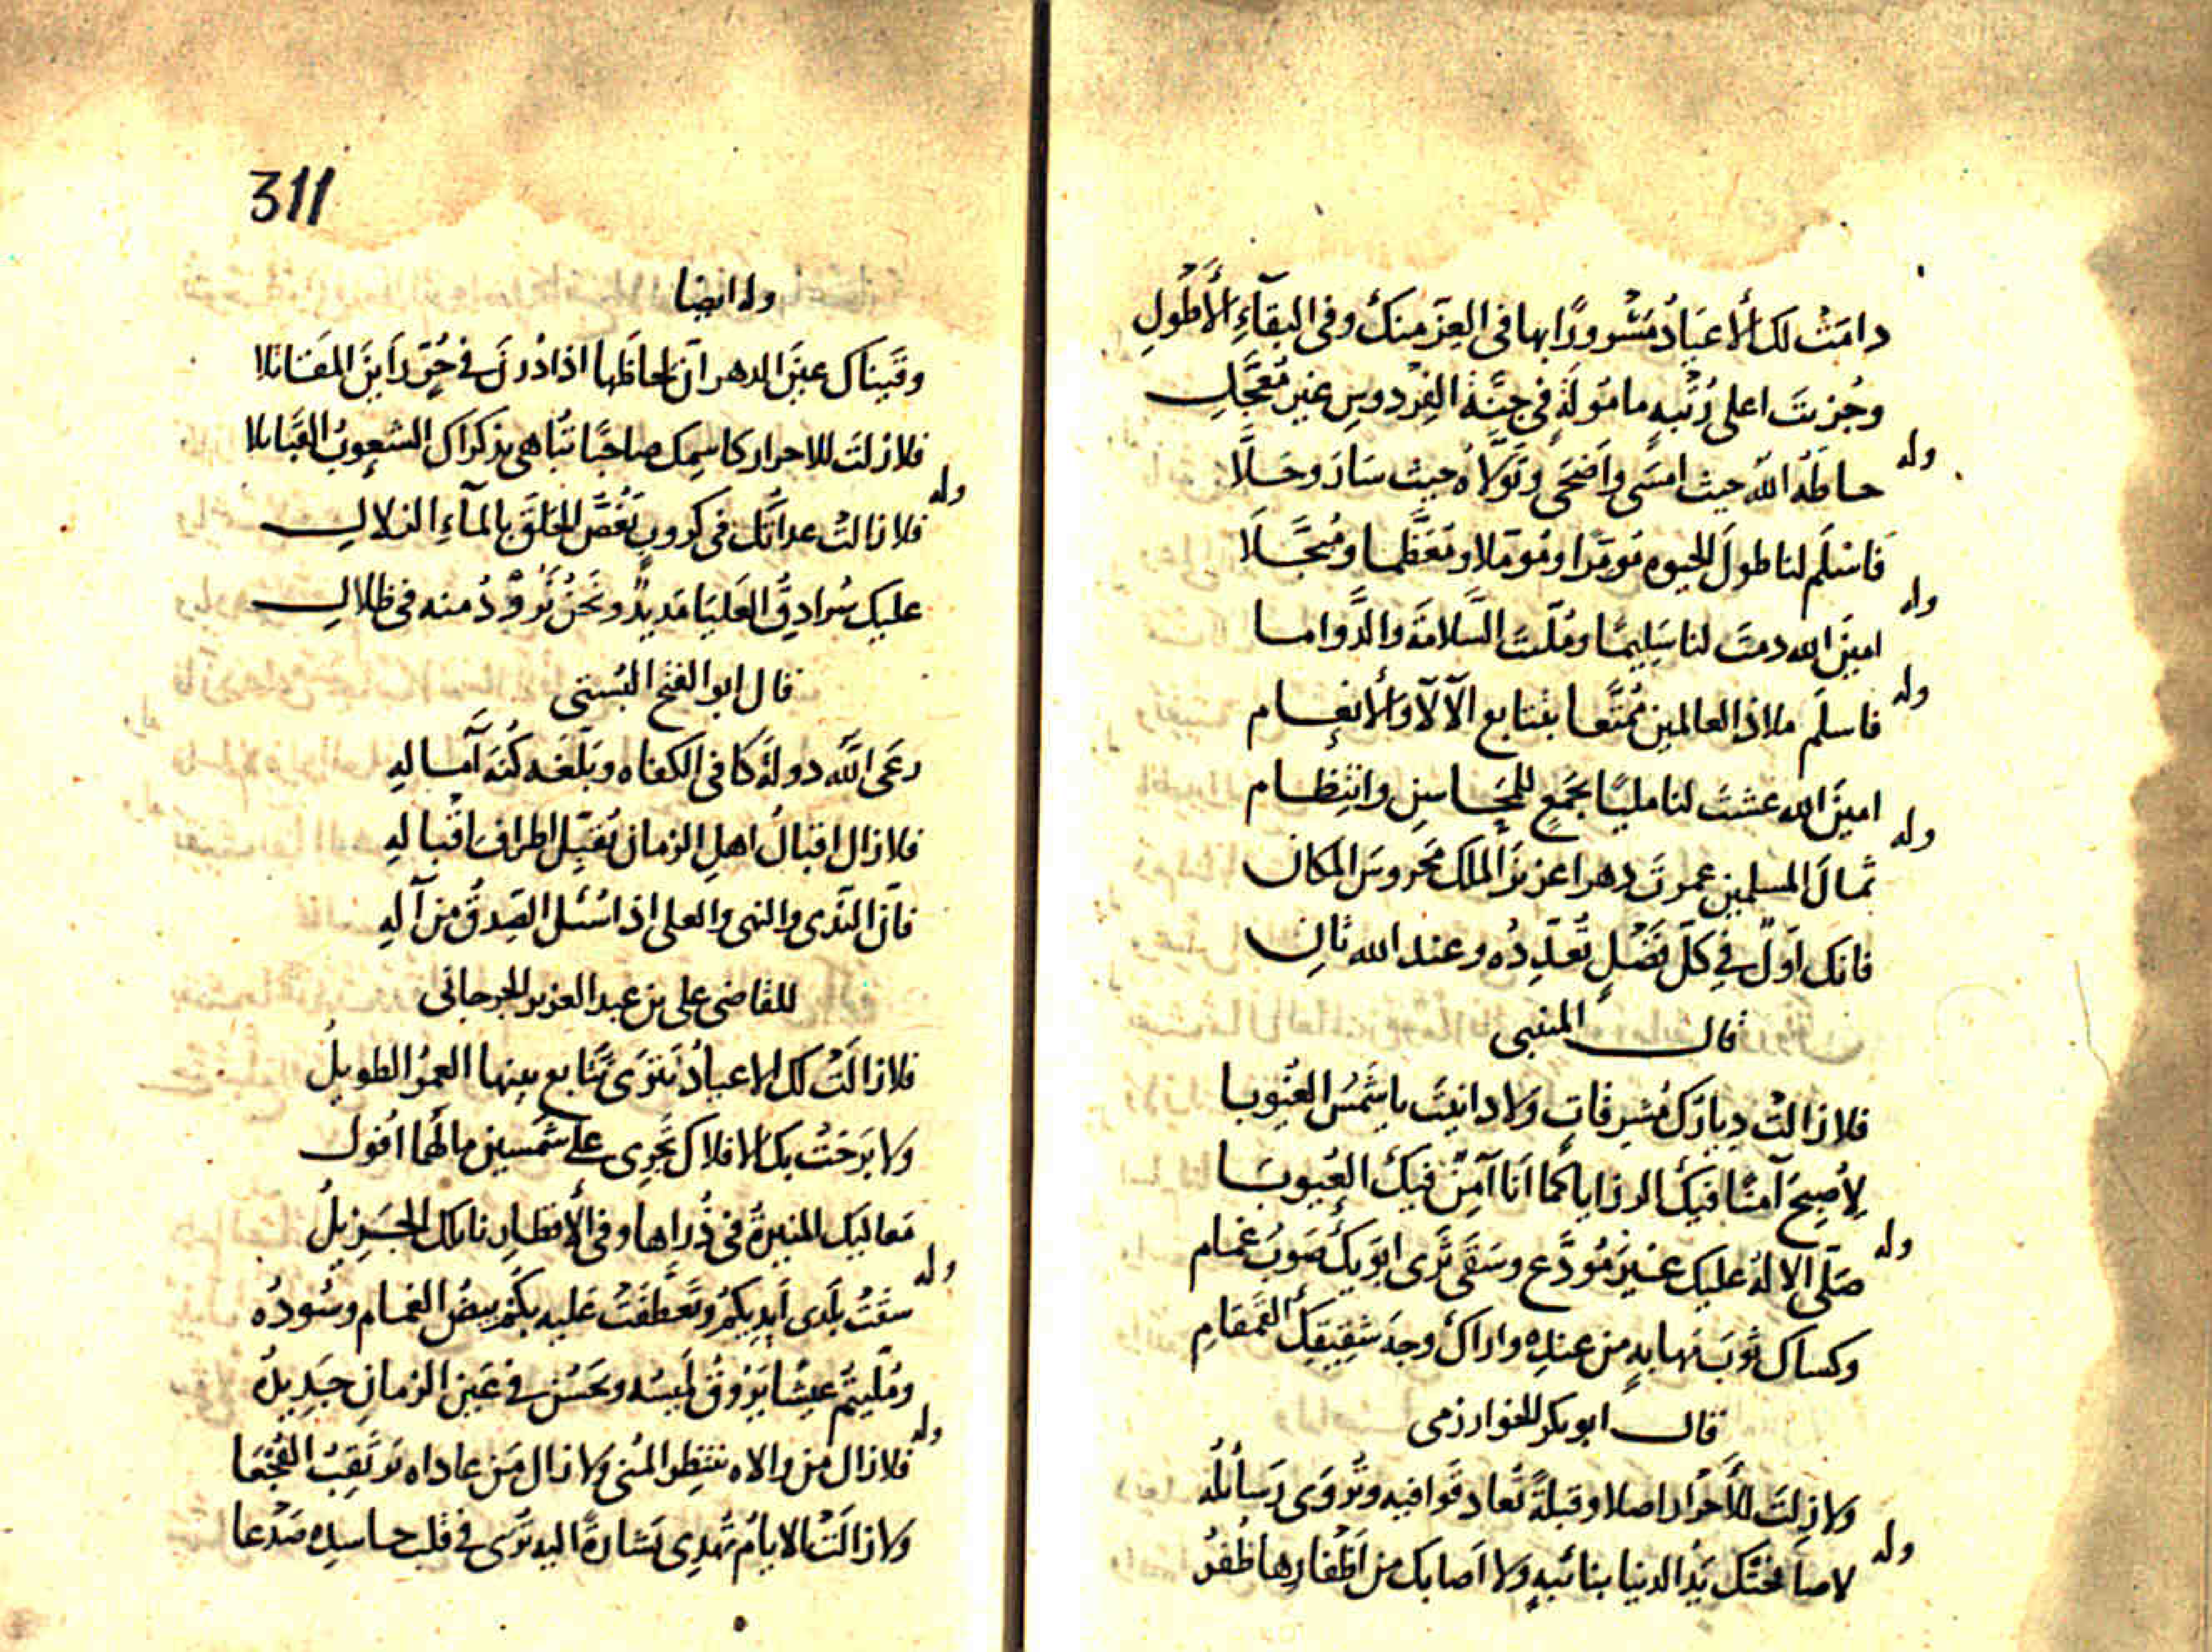 دامَتْ لك الأعيادُ مَسْرورًا بها في العِزّ منكَ وفي البقآءِ الأطْولِ
وجُزيتَ اعلى رُتْبةٍ مامُولَةٍ في جنّة الفِرْدوسِ غيرَ مُعَجَّلِ
وله
حاطَهُ اللّه حيث امسَى واَضْحَى وتَوَلّاهُ حيث سَارَ وحَلّا
فَاسْلَم لنا طولَ الحيوه مُوَقرًا ومُومّلا ومُعَظّما ومُبَجَّلَا
وله
امينَ الله دمتَ لنا سَلِيمًا ومُلّيتَ السَّلامَةَ والدَّواما
وله
فاسلَم ملاذ العالمين مُمَتَّعا بتتابع الآلآء والأنعام
امينَ الله عشتَ لنا مليًا بجَمعٍ للمحَاسِنِ وانتِظام
وله
ثمالَ المسلمين عمرتَ دهرا عزيزَ المُلك مَحروسَ المكان
فانك اَوّلٌ في كلّ فَضْلٍ تُعَدِّدُه وعند الله ثانِ
قال المتنبى
فلا زالتْ دِيارُكَ مُشرِقاتٍ ولا دانيتَ يا شَمْسُ الغُيوبا
لِأُصبِحَ آمنًا فيكَ الرزايا كما اَنا آمِنٌ فيكَ العُيوبَا
وله
صَلّى الالهُ عليك غيرَ مُودَّعٍ وسَقَى ثَرَى ابَوَيكَ صَوبُ غمام
وكساك ثوبَ مَهابةٍ من عندِه واراكَ وجهَ شقيقِكَ القَمقامِ
قال ابوبكر الخوارزمى
ولا زِلتَ للأحرار اصلا وقبلةً تُعاد قَوافيه وتُروَى رَسائلُه
وله
لا صافحَتْكَ يَدُ الدنيا بنائبةٍ ولا اَصابك من اَظْفارِها ظُفُرُ
311
وله ايضا
وقَيناك عينَ الدهر انّ لحاظَها اذا ادْركنَ في حُرٍّ رَاَينَ المقَاتلا
فلا زلتَ للاحرار كاسمِك صاحبًا تُباهى بذكراك الشعوبُ القَبائلا
وله
فلا زالتْ عداتُك في كروبٍ تُغِصّ الحَلقَ بالمآءِ الزلالِ
عليك سُرادِقُ العَليَا مَديدٌ ونَحنُ نَرُوْدُ منه في ظلالِ
قال ابو الفتح البُستى
رعَى اللّه دولةَ كافى الكفاه وبَلّغَه كُنْهَ آمالِهِ
فلا زال اقبالُ اهلِ الزمان يُقَبّل اطرافَ اقباله
فاِنّ النّدى والنهى والعلى اذا سُئل الصِّدقُ من آلِهِ
للقاضى على بن عبد العزيز الجرجانى
فلا زالَتْ لك الاعيادُ تَترَى تَتابع بينها العمرُ الطويلُ
ولا بَرَحَتْ بك الافلاكُ تَجرى على شمسين ما لهما اُفول
مَعاليك المنيرةُ في ذُراها وفي الأقطارِ نائلك الجَزيلُ
وله
سقَتْ بلَدى اَيديكمُ وتَعَطفَتْ عَليه بكُمْ بيضُ الغمام وسُودُه
ومُلّيتمُ عيشًا يَرُوقُ لُبسُه ويَحْسُن في عَينِ الزمانِ جَديدُه
وله
فلا زال من والاه ينتظِر المُنى ولا زال من عاداه يَرتَقِبُ الفُجْعَا
ولا زالَتْ الايامُ تُهدِى بَشارةً اليه تُرَى في قلب حاسدِه صَدْعا